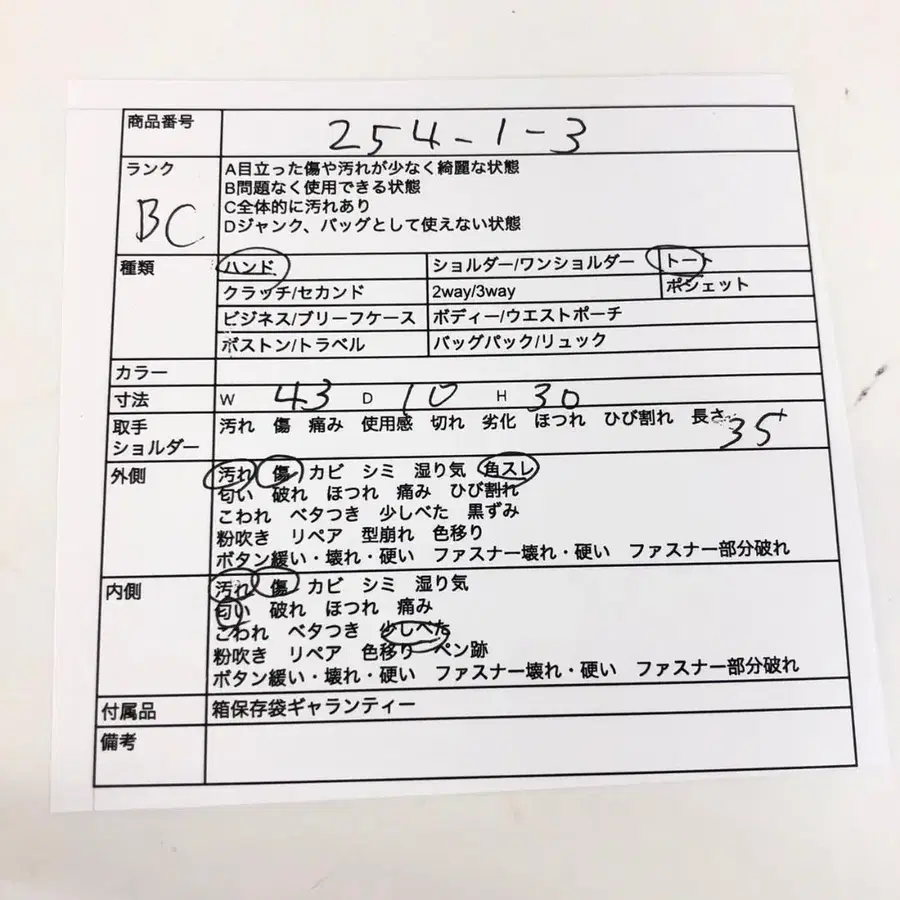 商品番号 254-1-3
ランク A目立った傷や汚れが少なく綺麗な状態
B問題なく使用できる状態
BC C全体的に汚れあり
Dジャンク、バッグとして使えない状態
種類 ハンド ショルダー/ワンショルダー トート
クラッチ/セカンド 2way/3way ポシェット
ビジネス/ブリーフケース ボディー/ウエストポーチ
ボストン/トラベル バッグパック/リュック
カラー
寸法 W 43 D 10 H 30
取手 汚れ 傷 痛み 使用感 切れ 劣化 ほつれ ひび割れ 長さ 35
ショルダー
外側 汚れ 傷 カビ シミ 湿り気 角スレ
匂い 破れ ほつれ 痛み ひび割れ
こわれ ベタつき 少しべた 黒ずみ
粉吹き リペア 型崩れ 色移り
ボタン緩い・壊れ・硬い ファスナー壊れ・硬い ファスナー部分破れ
内側 汚れ 傷 カビ シミ 湿り気
匂い 破れ ほつれ 痛み
こわれ ベタつき 少しべた
粉吹き リペア 色移り ペン跡
ボタン緩い・壊れ・硬い ファスナー壊れ・硬い ファスナー部分破れ
付属品 箱保存袋ギャランティー
備考